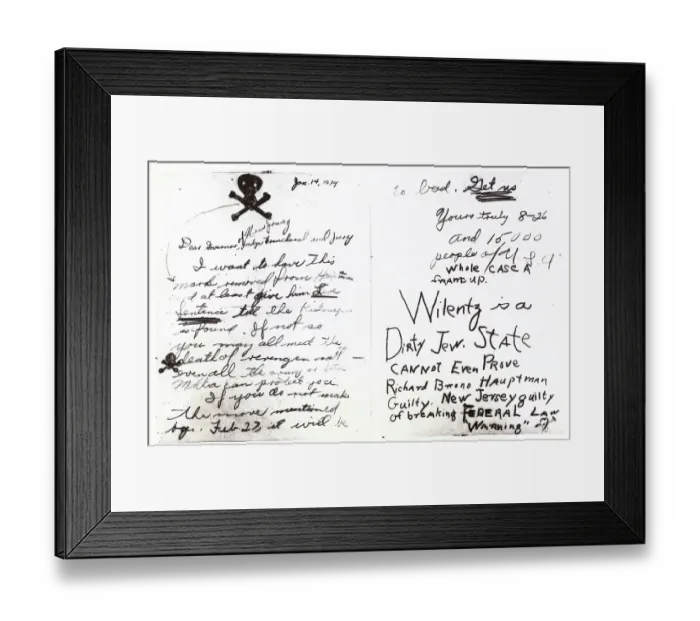 Jan. 14,
New Jersey
Dear Governor, Judge Trenchard and Jury
I want to have this
mask removed from
at least give him Life
Sentence till the Kidnaper
is found. If not so
you may all meet the
death of revenge on us
even all the army
can protect you
If you do not make
the move mentioned
by Feb 22, it will be
to bad. Get us
Yours truly 8-26
and 15,000
people of
Whole CASE A
FRAME UP.
Wilentz is a
Dirty Jew. STATE
CANNOT Even PROVE
Richard Bruno HAUPTMAN
Guilty. New Jersey guilty
of breaking FEDERAL LAW
"WARNING"